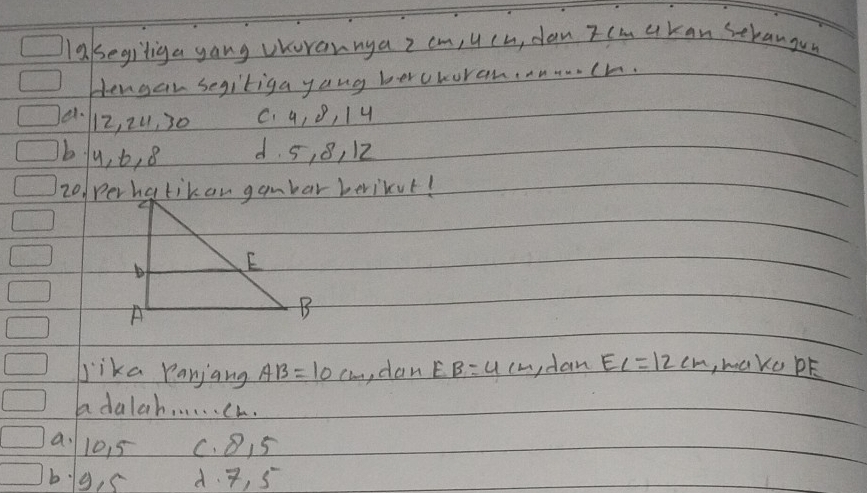 19. segitiga yang ukurannya 2 cm, 4 cm, dan 7 cm akan sebangun
dengan segitiga yang berukuran.........cm.
a. 12, 24, 30 c. 4, 8, 14
b. 4, 6, 8 d. 5, 8, 12
20. Perhatikan gambar berikut!
C
D E
A B
Jika Panjang AB = 10 cm, dan EB = 4 cm, dan EC = 12 cm, maka DE
adalah......cm.
a. 10,5 c. 8,5
b. 9,5 d. 7,5